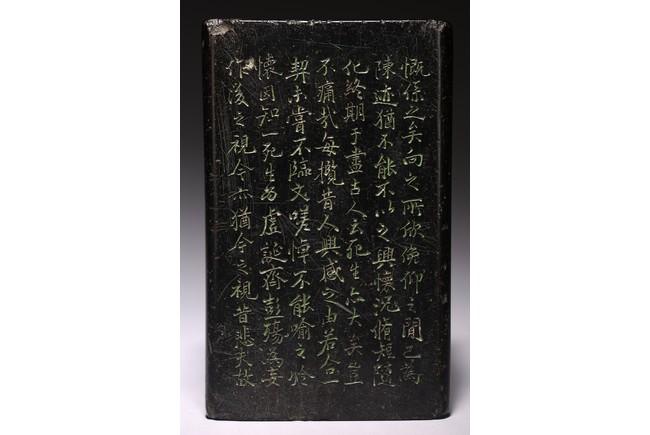 慨係之矣向之所欣俛仰之閒已為
陳迹猶不能不以之興懷況脩短隨
化終期于盡古人云死生亦大矣豈
不痛哉每攬昔人興感之由若合一
契未嘗不臨文嗟悼不能喻之於
懷固知一死生為虛誕齊彭殤為妄
作後之視今亦猶今之視昔悲夫故